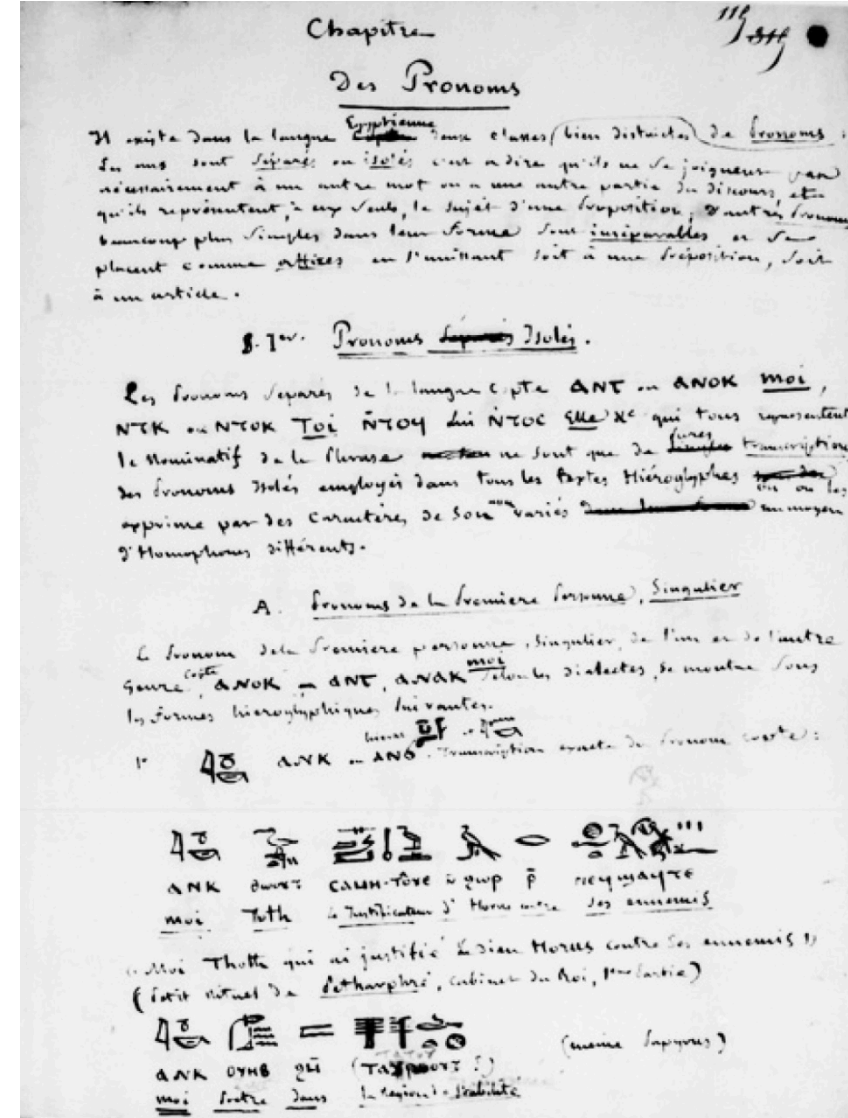 Chapitre
Des Pronoms
Il existe dans la langue Egyptienne deux classes (bien distinctes) de pronoms :
Les uns sont séparés ou isolés c'est à dire qu'ils ne se joignent pas
nécessairement à un autre mot ou a une autre partie du discours, et
qu'ils représentent, à eux seuls, le sujet d'une proposition; d'autres pronoms
beaucoup plus simples dans leur forme sont inséparables et se
placent comme affixes en s'unissant soit à une préposition, soit
à un article.
§. Ier. Pronoms Séparés Isolés.
Les pronoms séparés de la langue copte ΑΝΓ ou ΑΝΟΚ moi,
ΝΤΚ ou ΝΤΟΚ Toi Ν̄ΤΟϤ Lui Ν̄ΤΟC Elle &c qui tous représentent
le nominatif de la phrase ne sont que de pures transcriptions
des pronoms isolés employés dans tous les textes Hiéroglyphes où on les
exprime par des caractères de son variés au moyen
d'Homophones différents.
A. Pronoms de la première personne, Singulier
Le pronom de la première personne, singulier, de l'un et de l'autre
Genre, copte ΑΝΟΚ ou ΑΝΓ, ΑΝΑΚ moi selon les dialectes, se montre sous
les formes hiéroglyphiques suivantes.
1° ΑΝΚ ou ΑΝϬ. Transcription exacte du pronom copte :
ΑΝΚ ΘΩΟΥΤ
moi Toth le Justificateur d'Horus contre ses ennemis
« Moi Thoth qui ai justifié le dieu Horus contre ses ennemis »
(Petit rituel de Petharphré, cabinet du Roi, 1ère Partie)
ΑΝΚ ΟΥΗΒ (même papyrus)
moi Prêtre dans la région de Stabilité